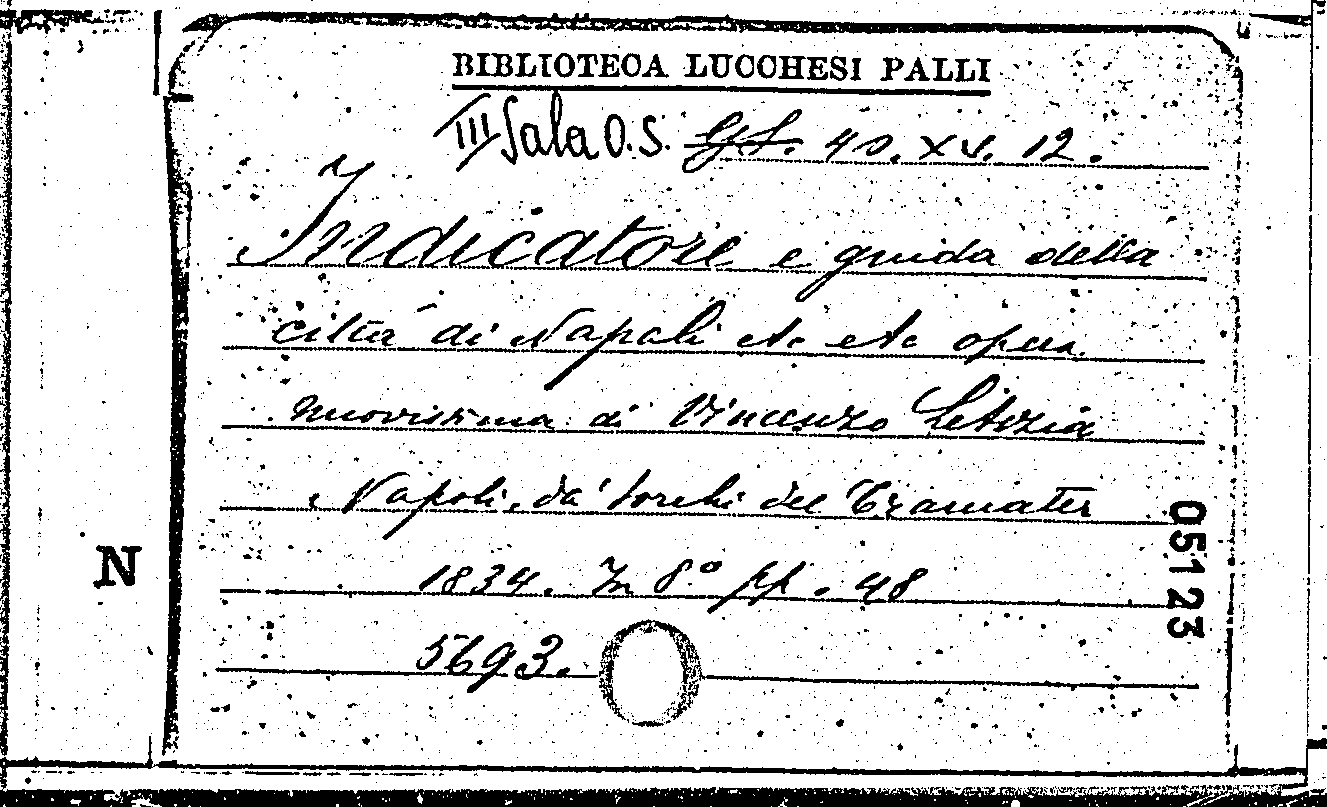 BIBLIOTECA LUCCHESI PALLI
III Sala O.S. G.S. 40. XV. 12.
Indicatore e guida della
città di Napoli etc etc opera
nuovissima di Vincenzo Letizia
Napoli, da' torchi del Tramater
1834. In 8° pp. 48
5693.
N
05123